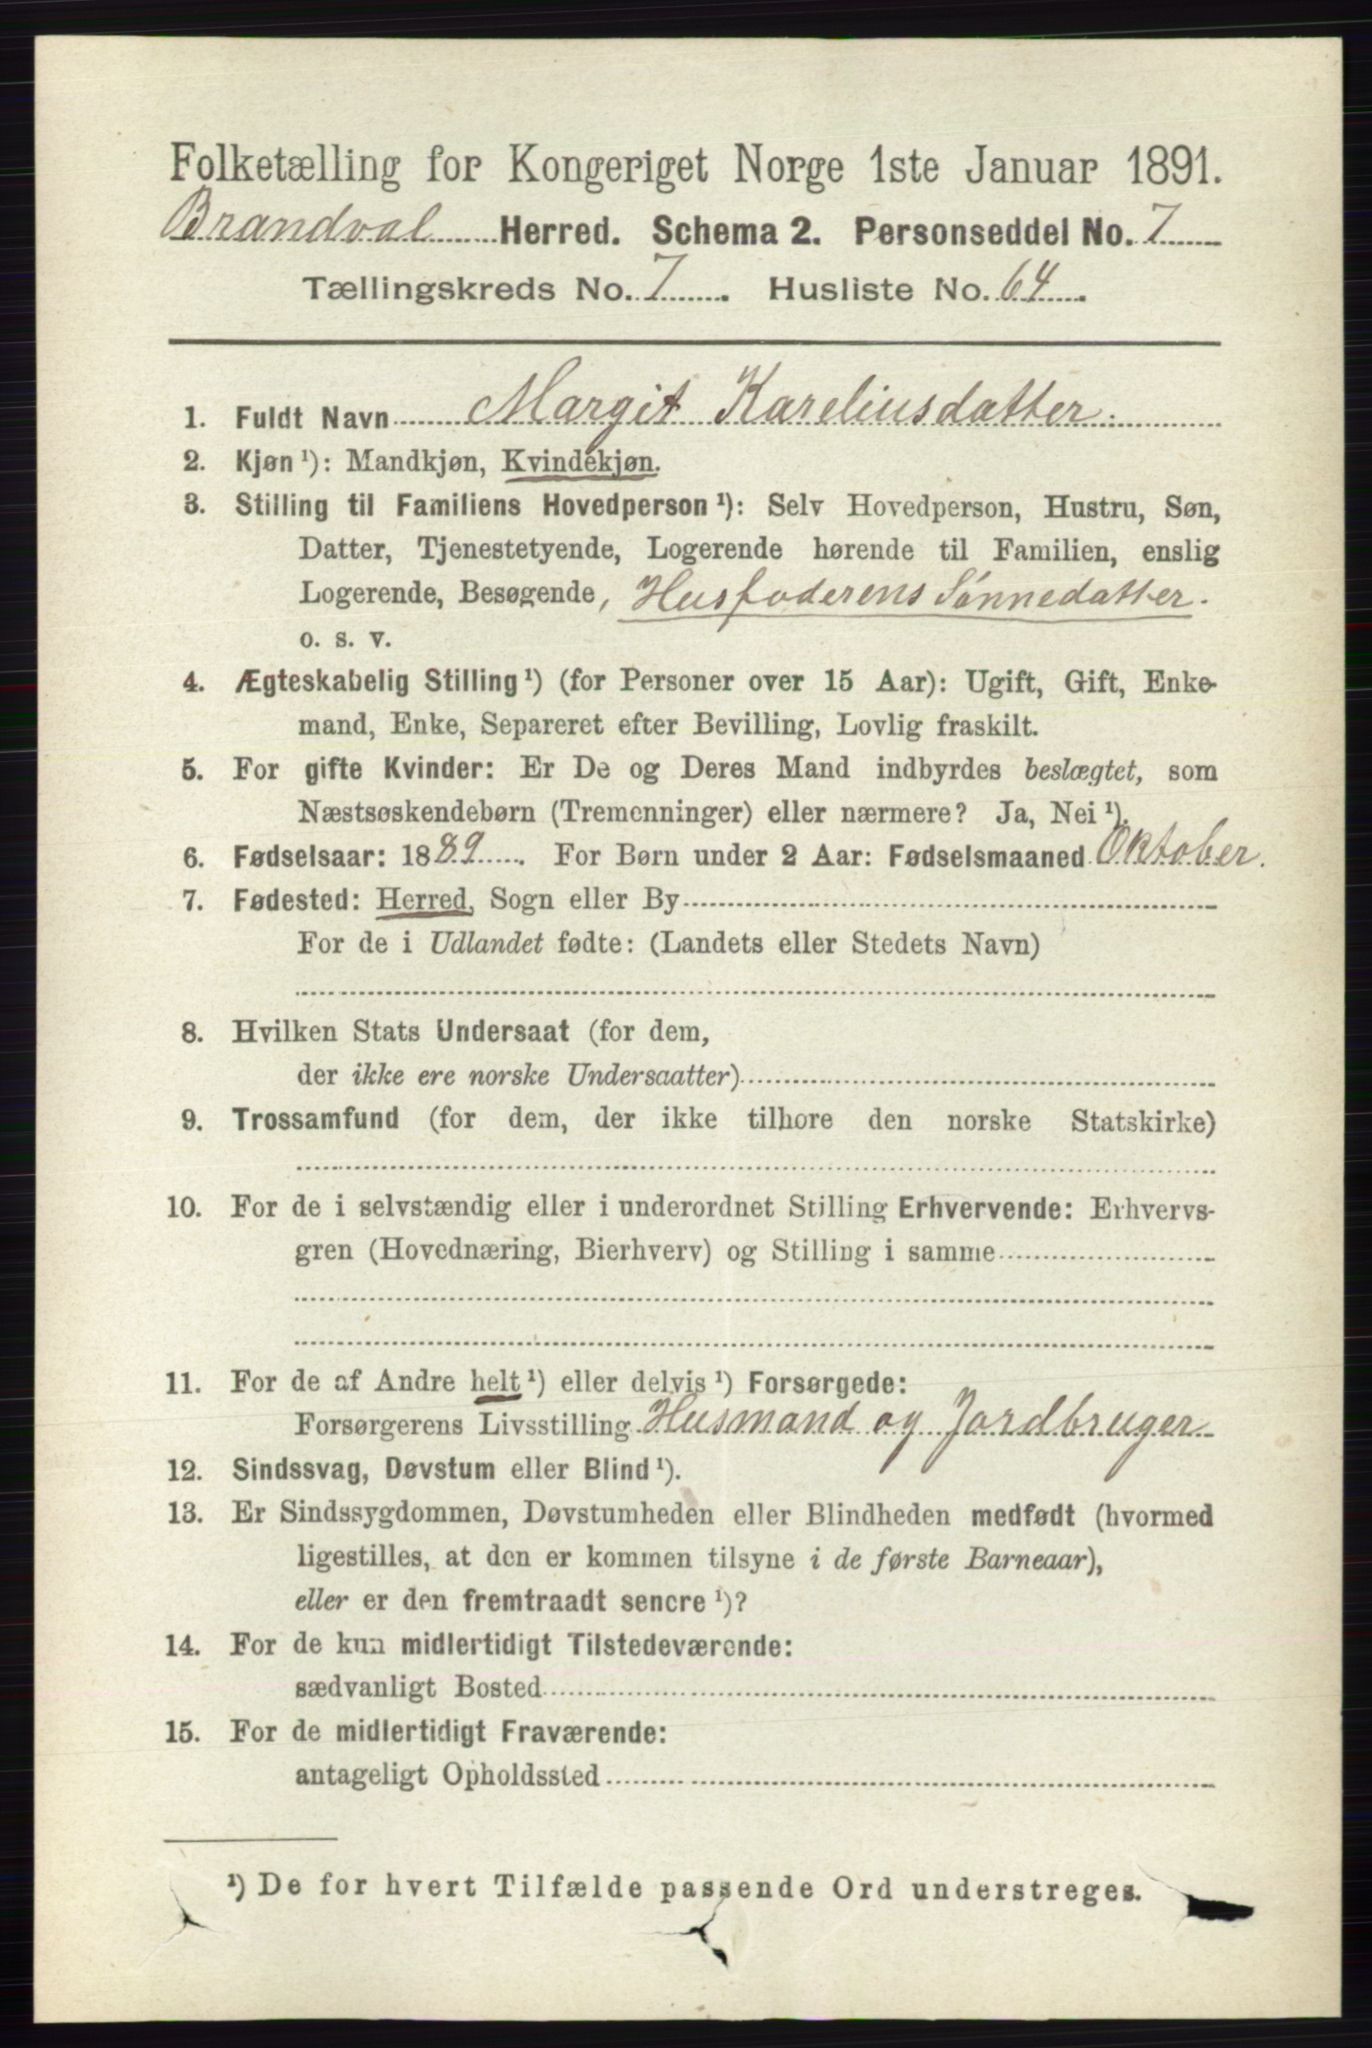 Folketælling for Kongeriget Norge 1ste Januar 1891.
Brandval Herred. Schema 2. Personseddel No. 7
Tællingskreds No. 7. Husliste No. 64.
1. Fuldt Navn Margit Kareliusdatter.
2. Kjøn ¹): Mandkjøn, Kvindekjøn.
3. Stilling til Familiens Hovedperson ¹): Selv Hovedperson, Hustru, Søn,
Datter, Tjenestetyende, Logerende hørende til Familien, enslig
Logerende, Besøgende, Husfoderens Sønnedatter.
o. s. v.
4. Ægteskabelig Stilling ¹) (for Personer over 15 Aar): Ugift, Gift, Enke-
mand, Enke, Separeret efter Bevilling, Lovlig fraskilt.
5. For gifte Kvinder: Er De og Deres Mand indbyrdes beslægtet, som
Næstsøskendebørn (Tremenninger) eller nærmere? Ja, Nei ¹).
6. Fødselsaar: 1889. For Børn under 2 Aar: Fødselsmaaned Oktober.
7. Fødested: Herred, Sogn eller By
For de i Udlandet fødte: (Landets eller Stedets Navn)
8. Hvilken Stats Undersaat (for dem,
der ikke ere norske Undersaatter)
9. Trossamfund (for dem, der ikke tilhøre den norske Statskirke)
10. For de i selvstændig eller i underordnet Stilling Erhvervende: Erhvervs-
gren (Hovednæring, Bierhverv) og Stilling i samme
11. For de af Andre helt ¹) eller delvis ¹) Forsørgede:
Forsørgerens Livsstilling Husmand og Jordbruger
12. Sindssvag, Døvstum eller Blind ¹).
13. Er Sindssygdommen, Døvstumheden eller Blindheden medfødt (hvormed
ligestilles, at den er kommen tilsyne i de første Barneaar),
eller er den fremtraadt senere ¹)?
14. For de kun midlertidigt Tilstedeværende:
sædvanligt Bosted
15. For de midlertidigt Fraværende:
antageligt Opholdssted
¹) De for hvert Tilfælde passende Ord understreges.